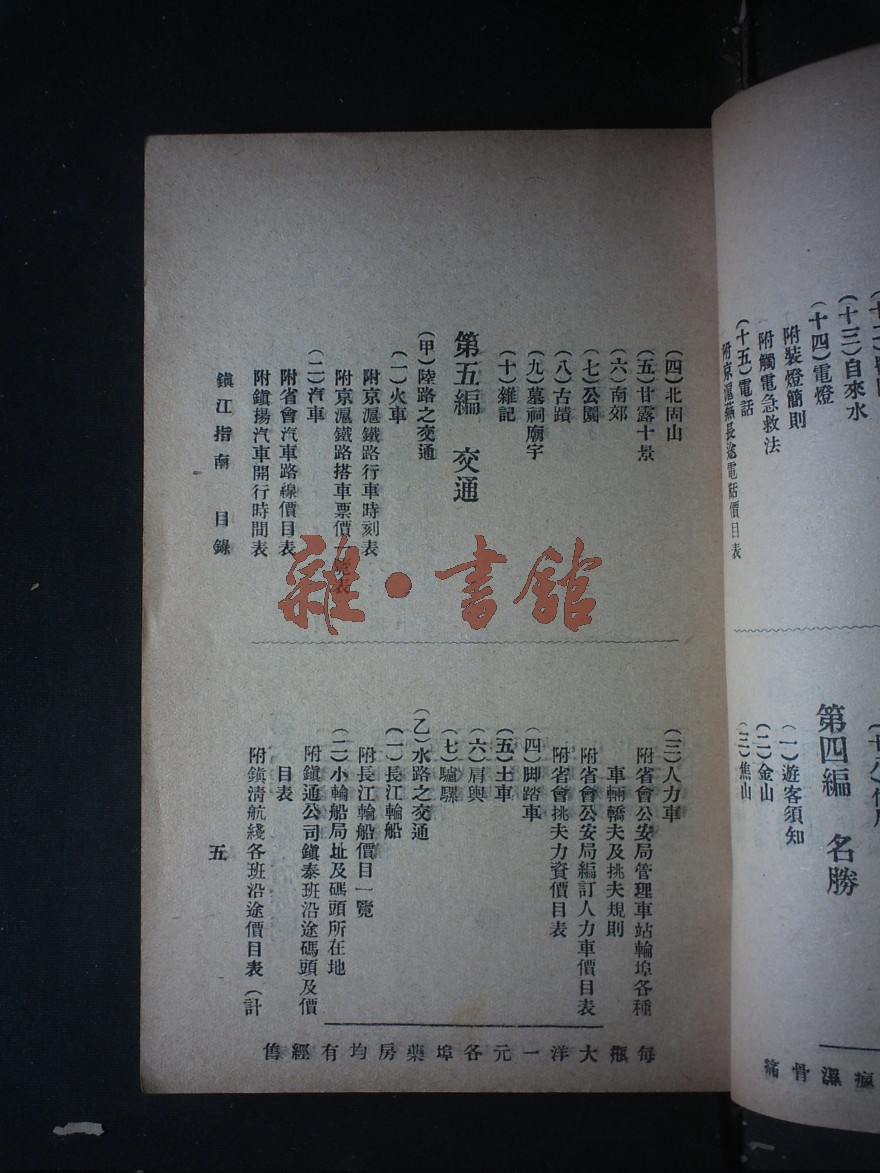 (十三)自來水
(十四)電燈
附裝燈簡則
附觸電急救法
(十五)電話
附京滬蕪長途電話價目表
第四編 名勝
(一)遊客須知
(二)金山
(三)焦山
濕骨痛
(四)北固山
(五)甘露十景
(六)南郊
(七)公園
(八)古蹟
(九)墓祠廟宇
(十)雜記
第五編 交通
(甲)陸路之交通
(一)火車
附京滬鐵路行車時刻表
附京滬鐵路搭車票價一覽表
(二)汽車
附省會汽車路線價目表
附鎭揚汽車開行時間表
鎭江指南 目錄
(三)人力車
附省會公安局管理車站輪埠各種
車輛轎夫及挑夫規則
附省會公安局編訂人力車價目表
附省會挑夫力資價目表
(四)脚踏車
(五)土車
(六)肩輿
(七)驢騾
(乙)水路之交通
(一)長江輪船
附長江輪船價目一覽
(二)小輪船局址及碼頭所在地
附鎭通公司鎭泰班沿途碼頭及價
目表
附鎭淸航綫各班沿途價目表(計
五
每瓶大洋一元各埠藥房均有經售
雜·書館